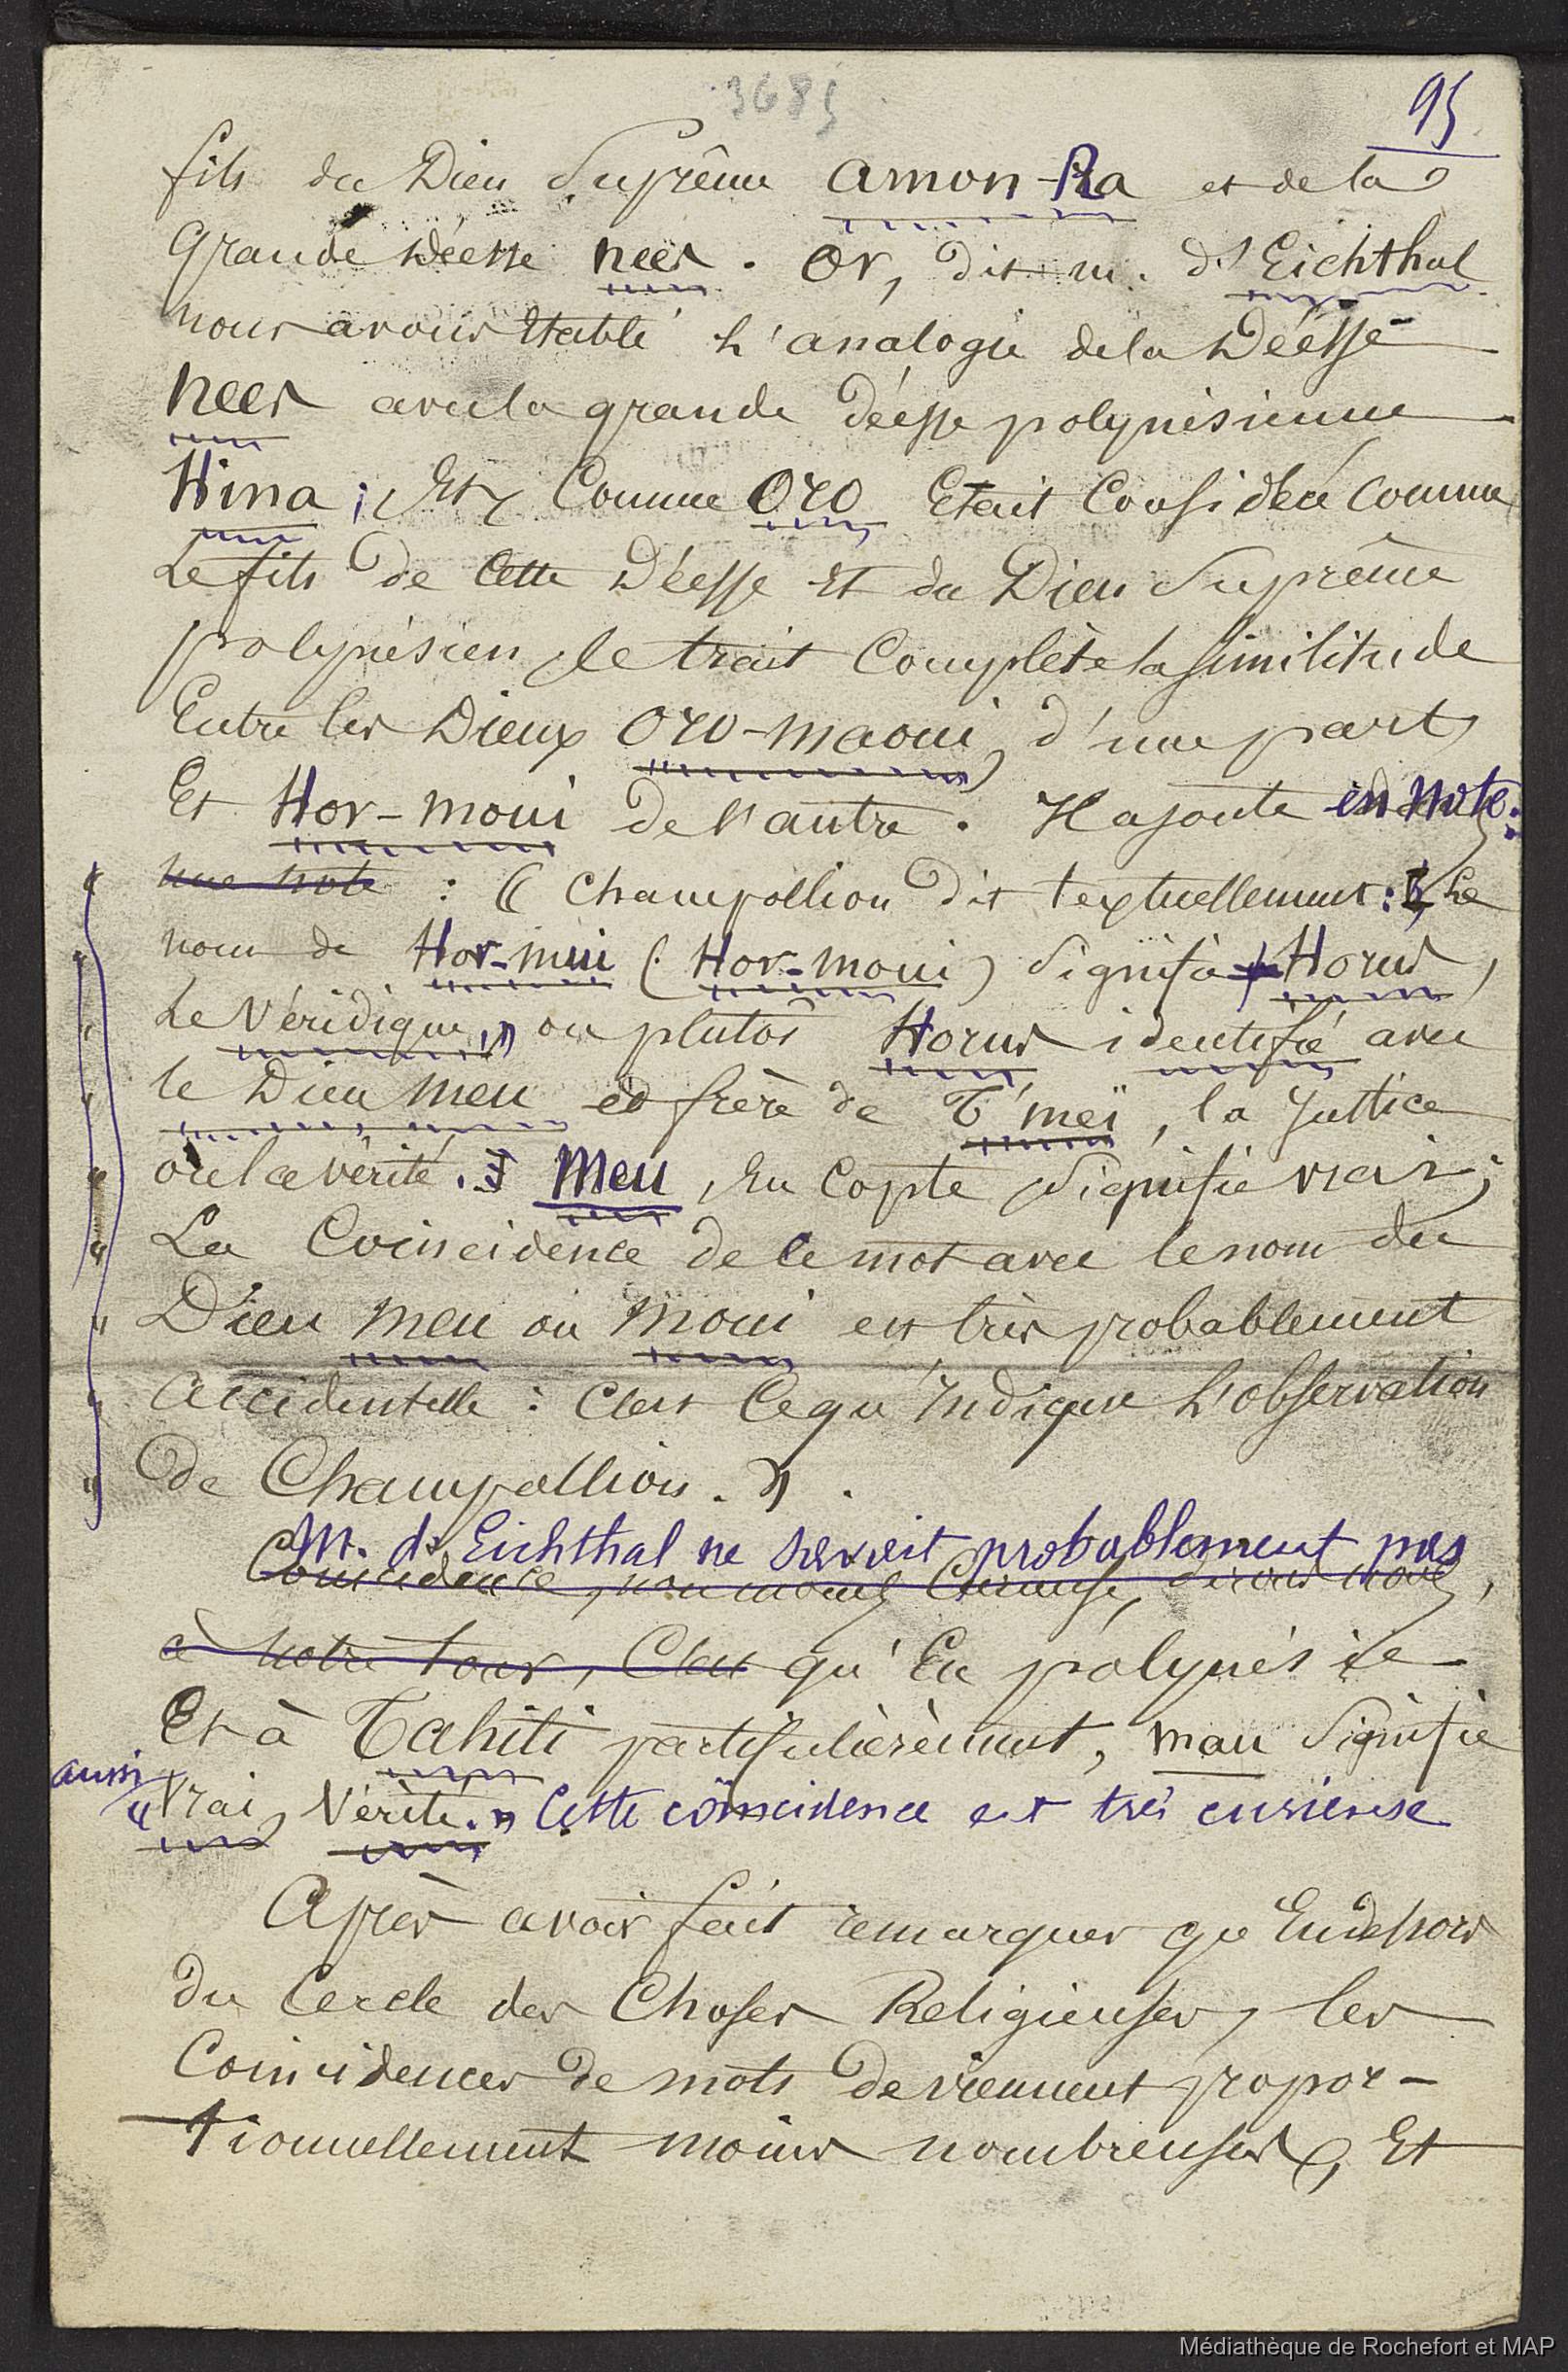 3685
95
fils du Dieu Suprême Amon-Ra et de la
Grande Déesse neës. Or, dit m. d'Eichthal
nous avons établi l'analogie de la Déesse
nees avec la grande déesse polynésienne
Hina; Et, Comme Oro Etait Considéré comme
Le fils de cette Déesse et du Dieu Suprême
polynésien, le trait complète la similitude
Entre les Dieux Oro-maoui, d'une part,
Et Hor-moui de l'autre. Il ajoute en note:
une note : (( Champollion dit textuellement: Le
nom de Hor-mui (Hor-moui) signifie Horus,
Le Véridique, ou plutôt Horus identifié avec
le Dieu meu et frère de T'meï, la Justice
ou la vérité. Meu, en Copte signifie vrai;
La Coïncidence de ce mot avec le nom du
Dieu meu ou moui est très probablement
Accidentelle : C'est ce qu'indique l'observation
de Champollion. )) .
M. d'Eichthal ne savait probablement pas
Coïncidence, non moins Curieuse, dirons nous,
à notre tour, C'est qu'En polynésie
Et à Tahiti particulièrement, mau signifie
aussi
"Vrai, Vérité." Cette coïncidence est très curieuse
Après avoir fait remarquer qu'En dehors
du Cercle des Choses Religieuses, les
Coïncidences de mots deviennent propor-
tionnellement moins nombreuses, Et
Médiathèque de Rochefort et MAP